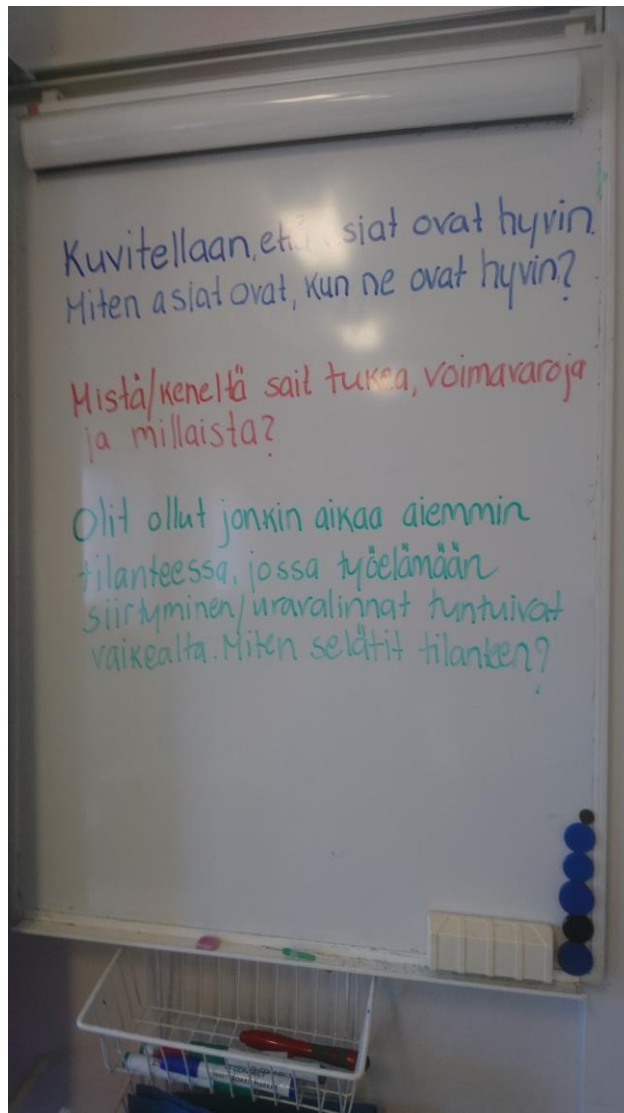 Kuvitellaan, että asiat ovat hyvin.
Miten asiat ovat, kun ne ovat hyvin?
Mistä/keneltä sait tukea, voimavaroja
ja millaista?
Olit ollut jonkin aikaa aiemmin
tilanteessa, jossa työelämään
siirtyminen/uravalinnat tuntuivat
vaikealta. Miten selätit tilanteen?